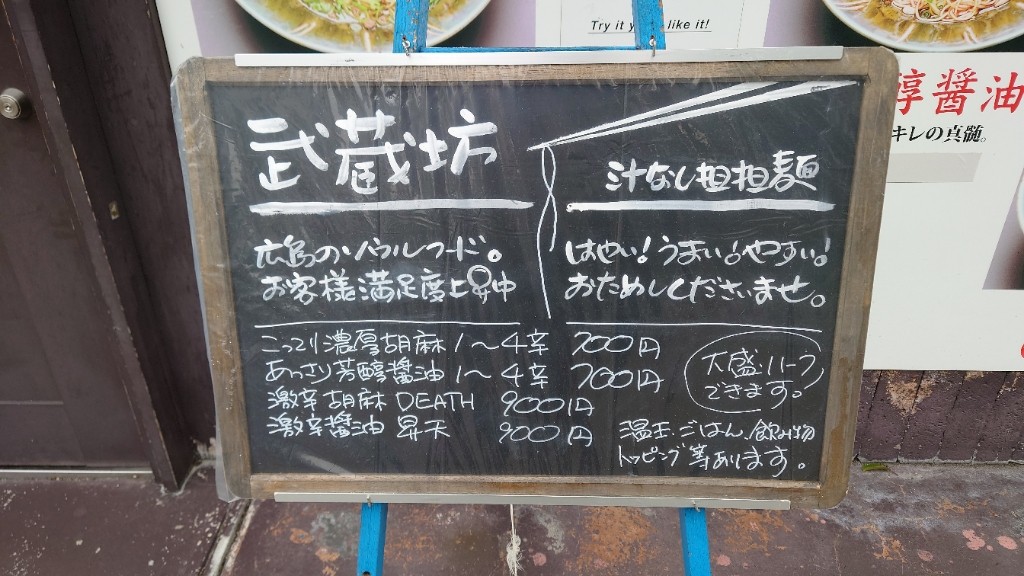 Try it you like it!
淳醤油
キレの真髄。
武蔵坊
汁なし担担麺
広島のソウルフード。
お客様満足度上昇中
はやい！うまい！やすい！
おためしくださいませ。
こってり濃厚胡麻 1～4辛 700円
あっさり芳醇醤油 1～4辛 700円
激辛胡麻 DEATH 900円
激辛醤油 昇天 900円
大盛・ハーフ
できます。
温玉、ごはん、飲み物
トッピング等あります。